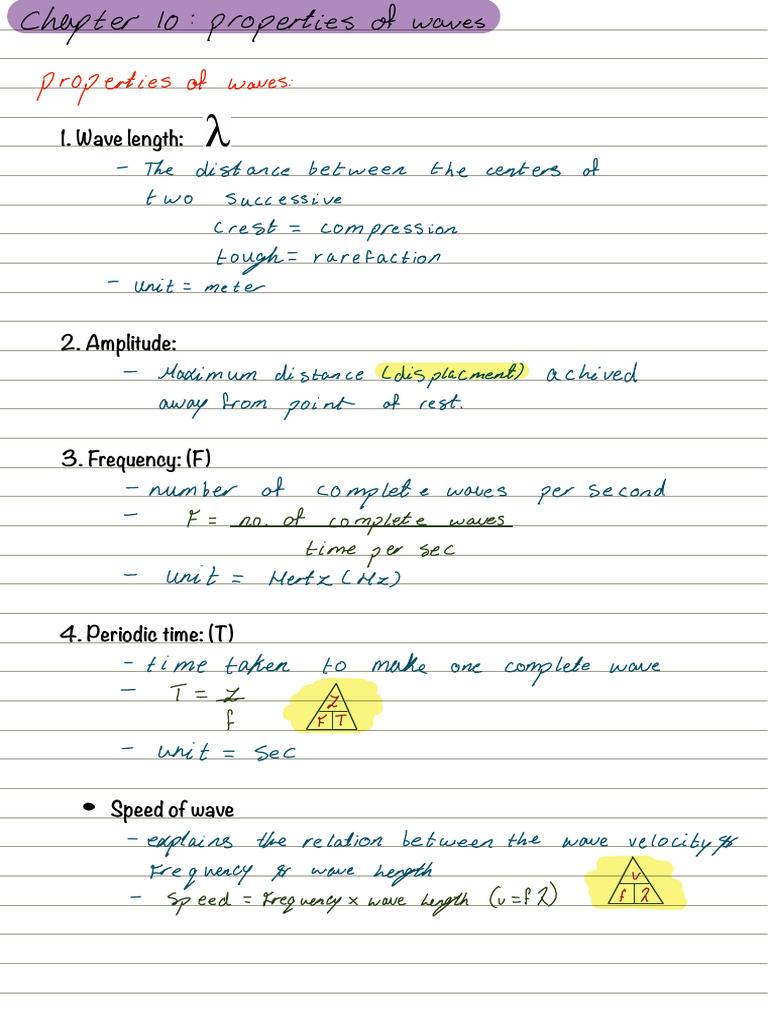 Chapter 10: properties of waves
properties of waves:
1. Wave length: λ
- The distance between the centers of
two successive
crest = compression
tough = rarefaction
- unit = meter
2. Amplitude:
- Maximum distance (displacment) achived
away from point of rest.
3. Frequency: (F)
- number of complete waves per second
- F = no. of complete waves
time per sec
- unit = Hertz (Hz)
4. Periodic time: (T)
- time taken to make one complete wave
- T = 1
f
1
F T
- unit = sec
• Speed of wave
- explains the relation between the wave velocity &
frequency & wave length
- speed = frequency × wave length (v = f λ)
v
f λ